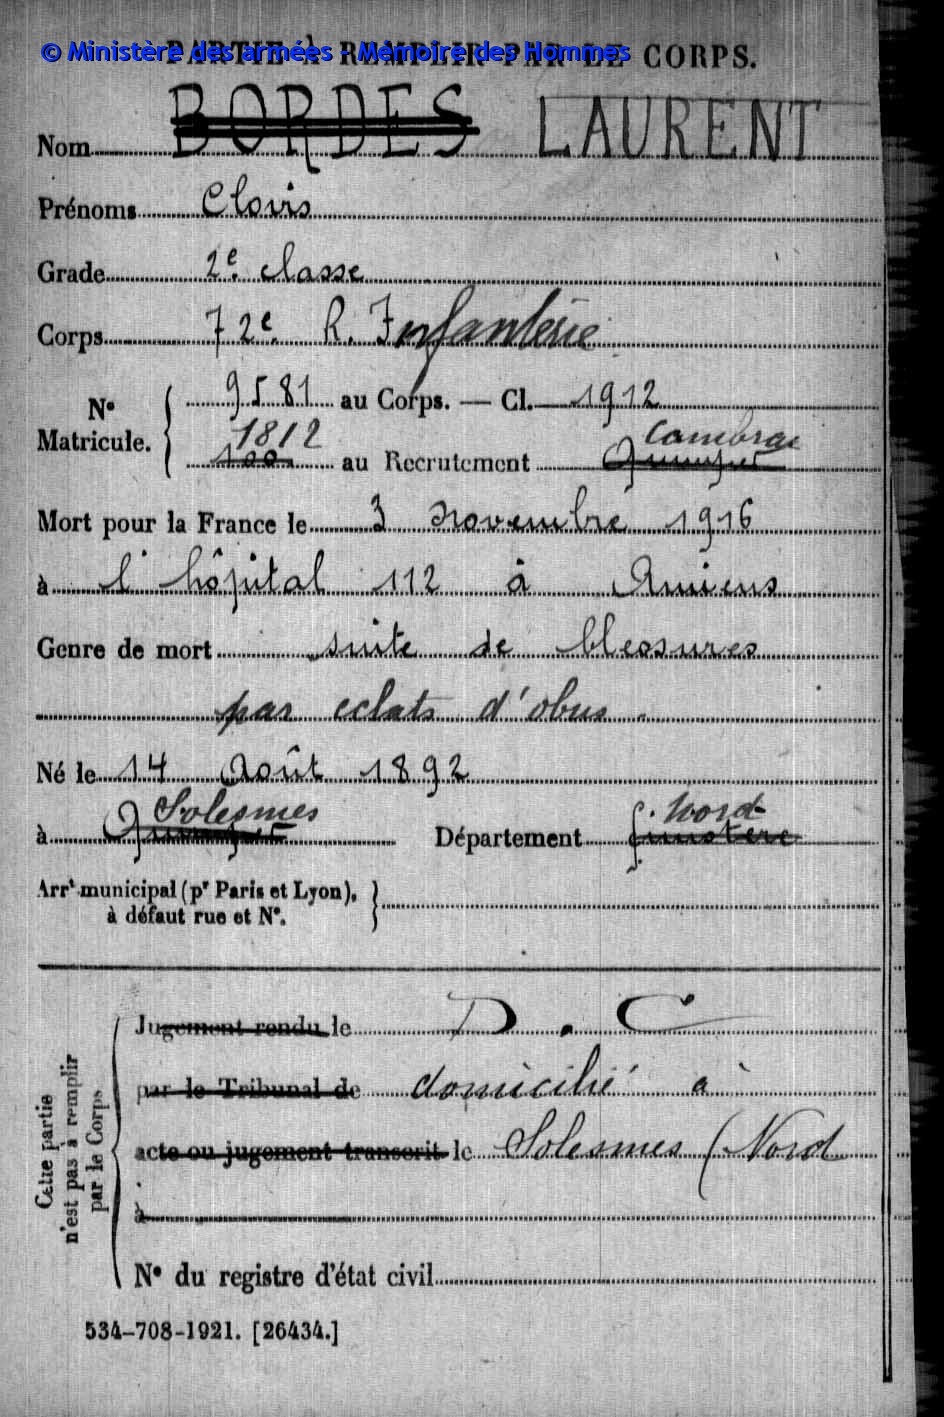 © Ministère des armées - Mémoire des Hommes
PARTIE À REMPLIR PAR LE CORPS.
Nom BORDES LAURENT
Prénoms Clovis
Grade 2e classe
Corps 72e R. Infanterie
N° Matricule. 9581 au Corps. — Cl. 1912
1812 Cambrai
100 au Recrutement Quimper
Mort pour la France le 3 Novembre 1916
à l'hôpital 112 à Amiens
Genre de mort suite de blessures
par eclats d'obus.
Né le 14 Août 1892
Solesmes Nord
à Quimper Département finistère
Arrt municipal (pr Paris et Lyon),
à défaut rue et N°.
Cette partie
n'est pas à remplir
par le Corps
Jugement rendu le D. C
par le Tribunal de domicilié à
acte ou jugement transcrit le Solesmes (Nord
à
N° du registre d'état civil
534-708-1921. [26434.]